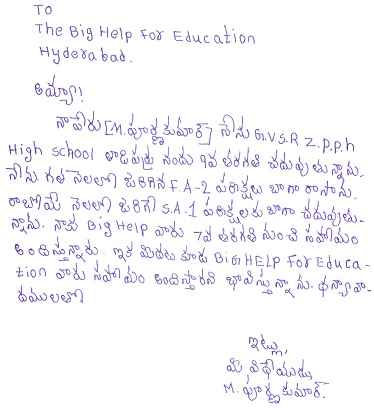 To
The Big Help For Education
Hyderabad.
అయ్యా!
నాపేరు [M.పూర్ణకుమార్] నేను G.V.S.R Z.P.P.h
High school లాడిపర్రు నందు 9వ తరగతి చదువుతున్నాను.
నేను గత నెలలో జరిగిన F.A-2 పరీక్షలు బాగా రాసాను.
రాబోయే నెలలో జరిగే S.A-1 పరీక్షలకు బాగా చదువుతు-
న్నాను. నాకు Big Help వారు 7వ తరగతి నుంచి సహాయం
అందిస్తున్నారు. ఇక మీదట కూడ BIG HELP For Educa-
tion వారు సహాయం అందిస్తారని భావిస్తున్నాను. ధన్యావా-
దములతో
ఇట్లు,
మీ విధేయుడు,
M. పూర్ణకుమార్.